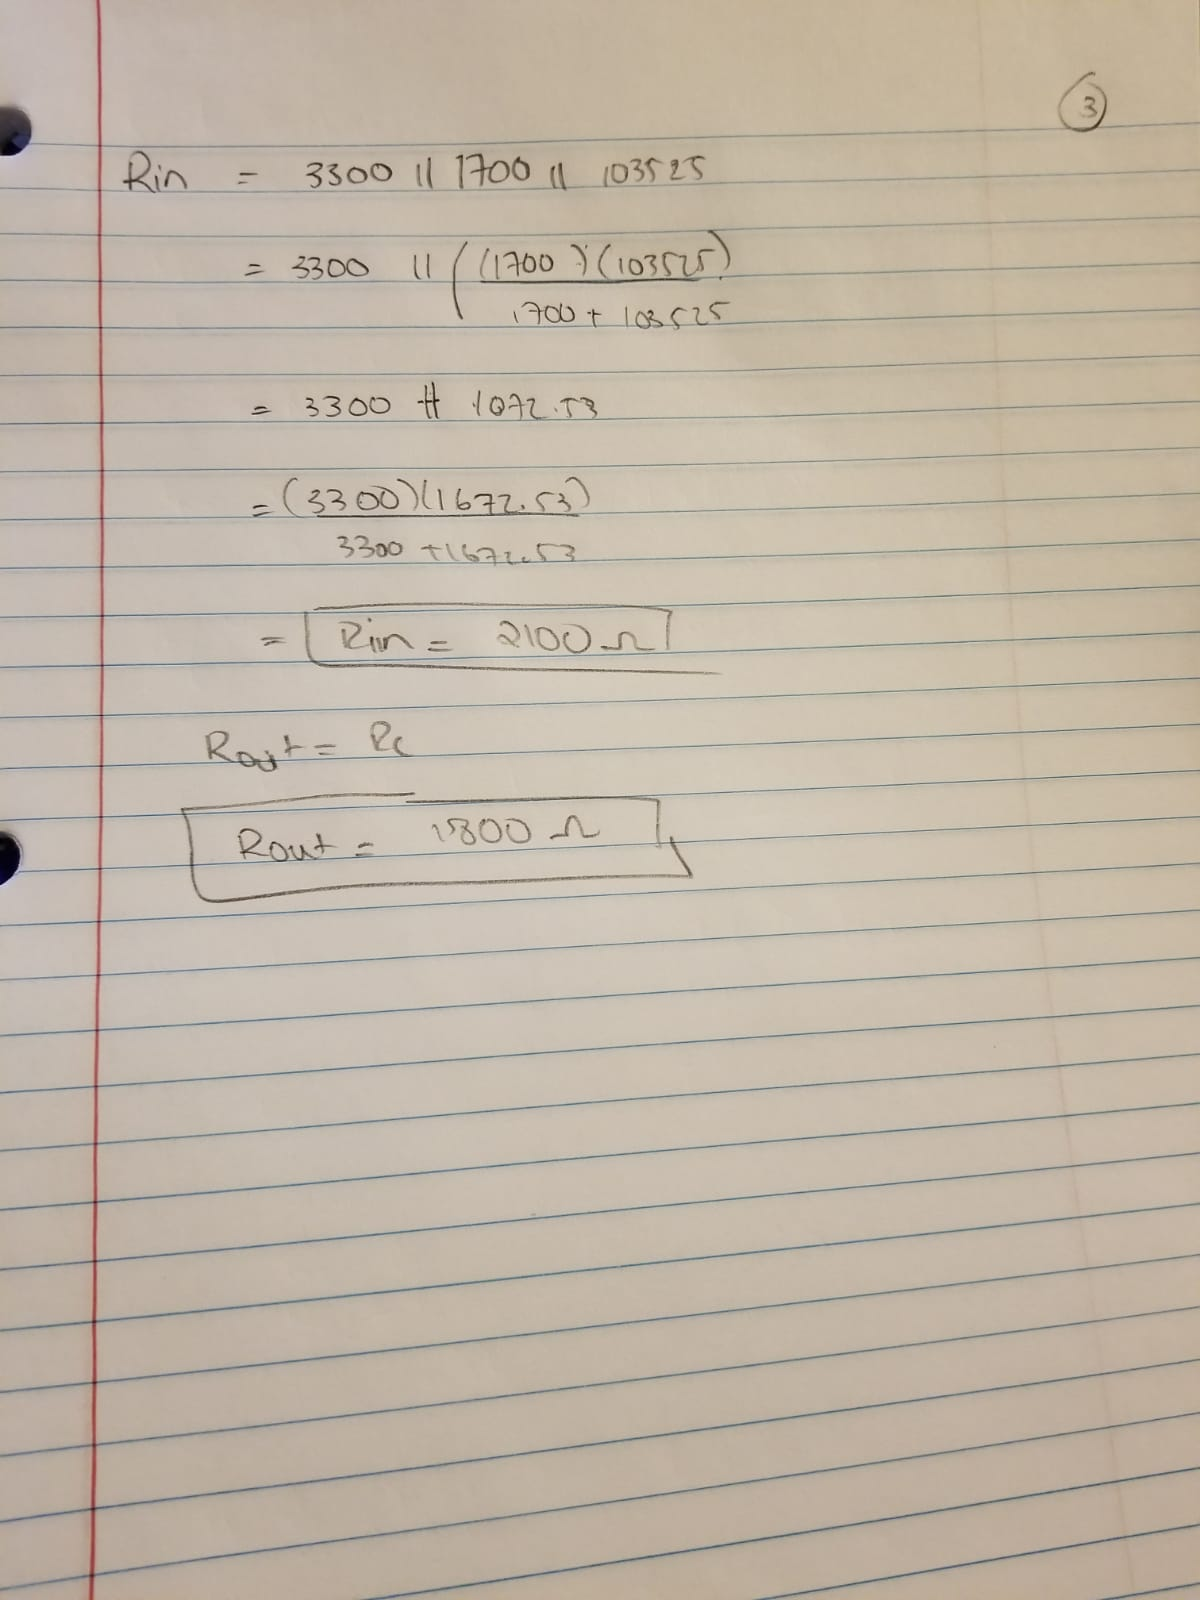 3
Rin = 3300 || 1700 || 103525
= 3300 || ( (1700)(103525)
1700 + 103525
= 3300 || 1672.53
= (3300)(1672.53)
3300 + 1672.53
= Rin = 2100 Ω
Rout = Rc
Rout = 1800 Ω